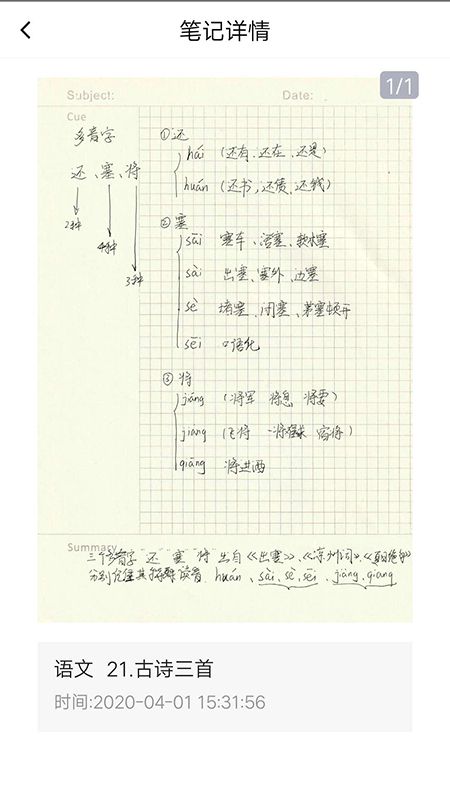 笔记详情
1/1
Subject:
Date:
Cue
多音字
还、塞、将
2种
4种
3种
①还
hái (还有、还在、还是)
huán (还书,还债、还钱)
②塞
sāi 塞车、活塞、软木塞
sài 出塞、塞外、边塞
sè 堵塞、闭塞、茅塞顿开
sēi 口语化
③将
jiāng (将军 将息 将要)
jiàng (飞将 一将 将)
qiāng 将进酒
Summary
三个多音字 还 塞 将 出自《出塞》、《凉州词》、《夏日绝句》
分别 其 读音 huán、sài,sè,sēi、jiāng,qiang
语文 21.古诗三首
时间:2020-04-01 15:31:56